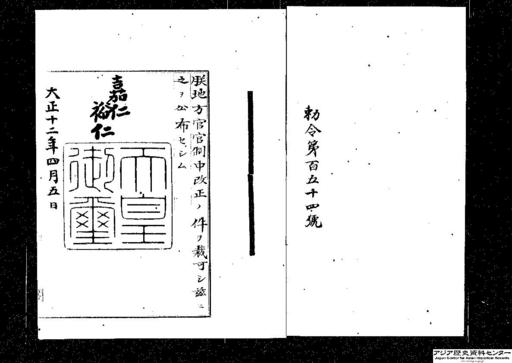 勅令第百五十四號
朕地方官官制中改正ノ件ヲ裁可シ茲ニ
之ヲ公布セシム
嘉仁
裕仁
天皇御璽
大正十二年四月五日
アジア歴史資料センター
Japan Center for Asian Historical Records